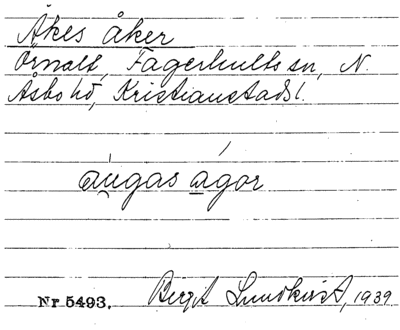 Åkes åker
Örnalt, Fagerhults sn, N.
Åsbo hd, Kristianstads l.
áu̯gas ágor
Nr 5493. Birgit Lundkvist, 1939